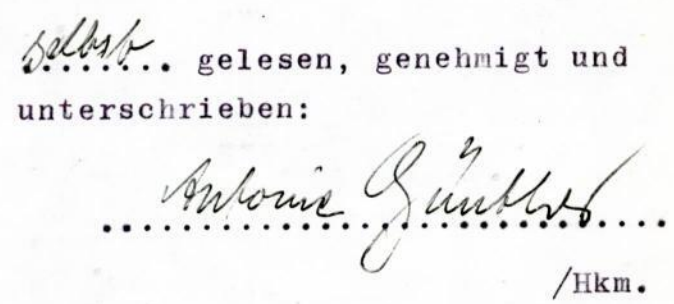 selbst gelesen, genehmigt und
unterschrieben:
Antonie Günther
/Hkm.